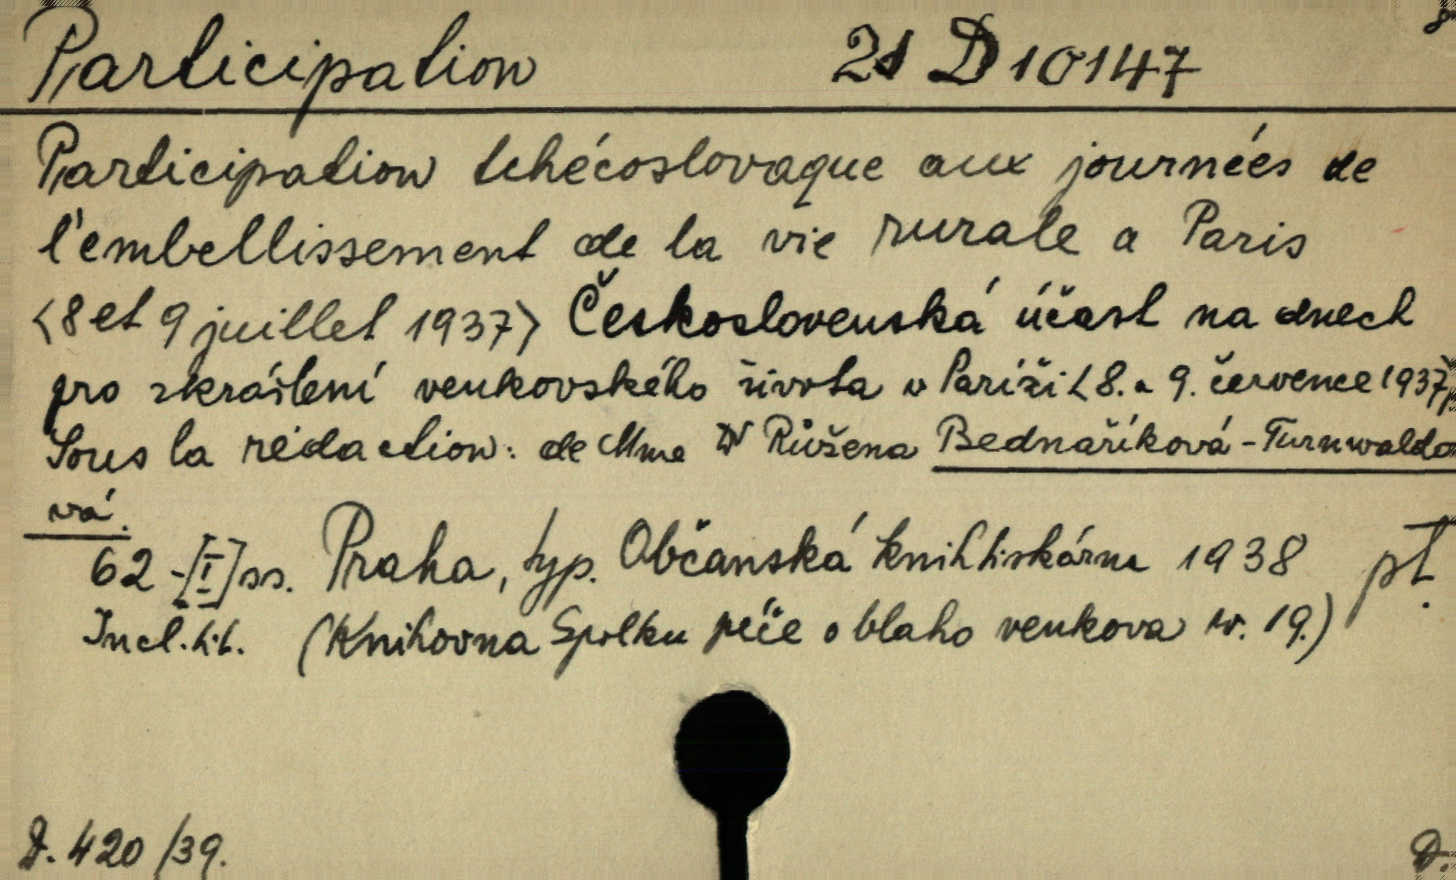 Participation 21 D 10147
Participation tchécoslovaque aux journées de
l'embellissement de la vie rurale a Paris
<8 et 9 juillet 1937> Československá účast na dnech
pro zkrášlení venkovského života v Paříži <8. a 9. července 1937>
Sous la rédaction: de Mme Dr Růžena Bednaříková-Turnwaldo
vá.
62-[I] ss. Praha, typ. Občanská knihtiskárna 1938 pł.
Incl. tit. (Knihovna Spolku péče o blaho venkova sv. 19.)
D. 420/39. D.